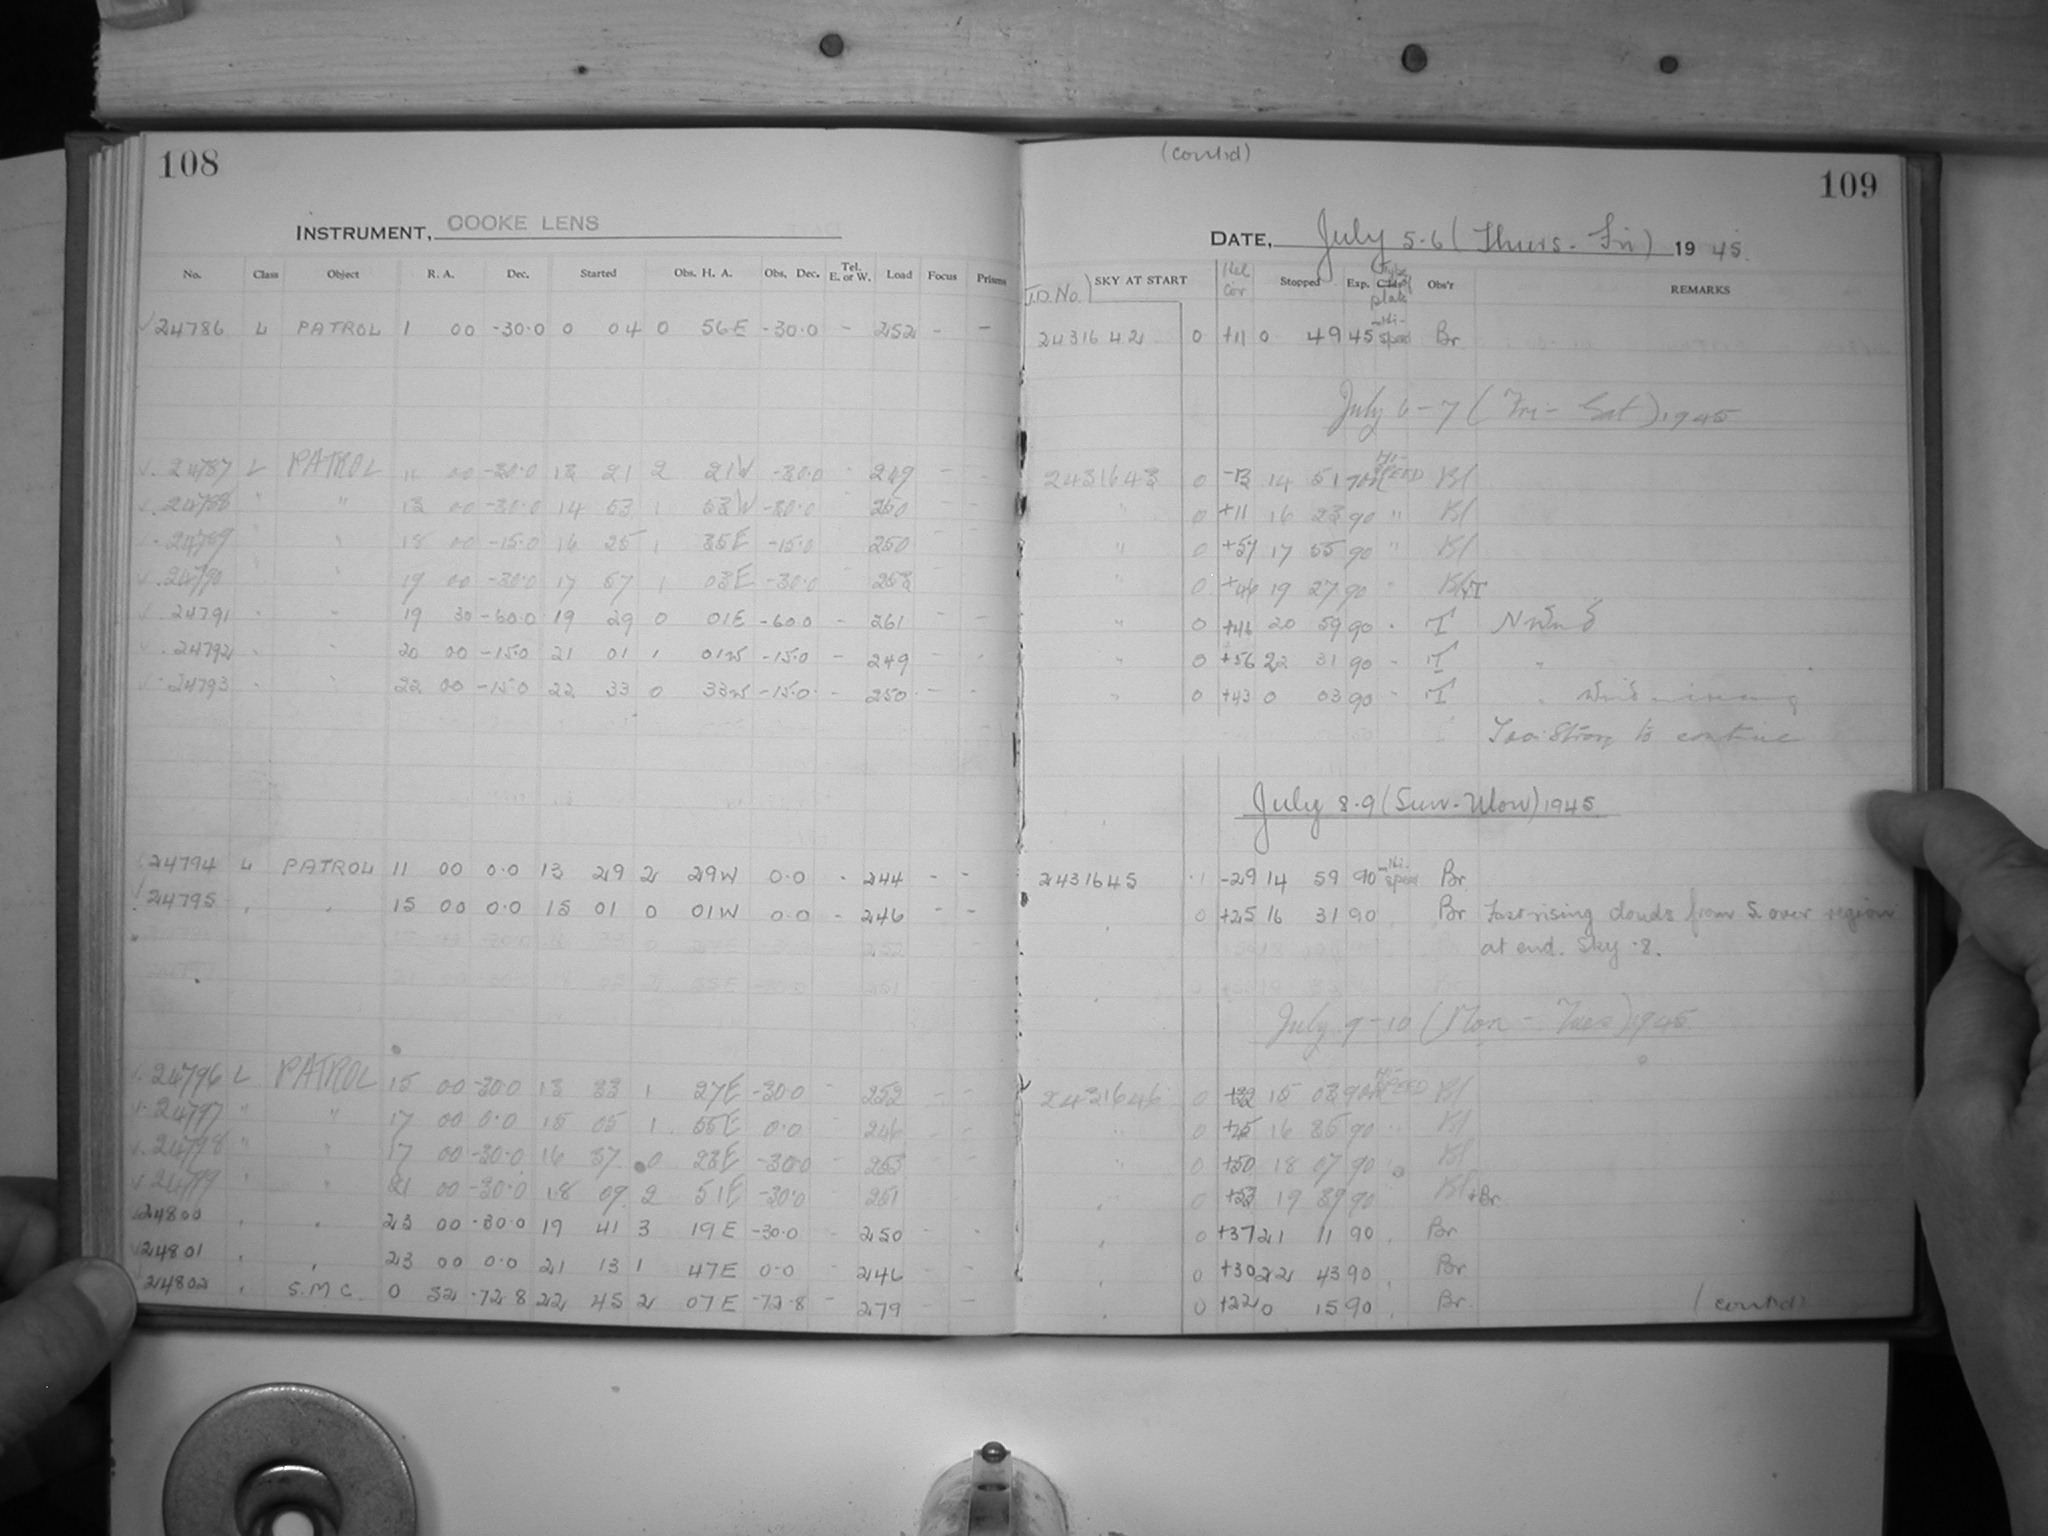 108
INSTRUMENT, COOKE LENS
No. Class Object R. A. Dec. Started Obs. H. A. Obs. Dec. Tel. E. or W. Load Focus Prisms
√24786 L PATROL 1 00 -30.0 0 04 0 56E -30.0 - 252 - -
√. 24787 L PATROL 11 00 -30.0 13 21 2 21W -30.0 - 249 - -
√. 24788 " " 13 00 -30.0 14 53 1 53W -30.0 - 250 - -
24789 " " 18 00 -15.0 16 25 1 35E -15.0 - 250 - -
√. 24790 " " 19 00 -30.0 17 57 1 03E -30.0 - 253 - -
√. 24791 " " 19 30 -60.0 19 29 0 01E -60.0 - 261 - -
√. 24792 " " 20 00 -15.0 21 01 1 01W -15.0 - 249 - -
√. 24793 " " 22 00 -15.0 22 33 0 33W -15.0 - 250 - -
24794 L PATROL 11 00 0.0 13 29 2 29W 0.0 - 244 - -
24795 " " 15 00 0.0 15 01 0 01W 0.0 - 246 - -
√. 24796 L PATROL 15 00 -30.0 13 33 1 27E -30.0 - 252 - -
√. 24797 " " 17 00 0.0 15 05 1 55E 0.0 - 246 - -
√. 24798 " " 17 00 -30.0 16 37 0 23E -30.0 - 253 - -
√ 24799 " " 21 00 -30.0 18 09 2 51E -30.0 - 251 - -
√24800 " " 23 00 -30.0 19 41 3 19E -30.0 - 250 - -
√24801 " " 23 00 0.0 21 13 1 47E 0.0 - 246 - -
√24802 " S.M.C. 0 32 -72.8 22 45 2 07E -72.8 - 279 - -
(contd)
109
DATE, July 5-6 (Thurs. - Fri) 1945.
J.D. No. SKY AT START Hel Cor Stopped Exp. Type of plate Obs'r REMARKS
2431642 0 +11 0 49 45 Hi-Speed Br
July 6-7 (Fri - Sat) 1945
2431643 0 -13 14 51 90 Hi-SPEED Bl
" 0 +11 16 23 90 " Bl
" 0 +57 17 55 90 " Bl
" 0 +46 19 27 90 " Bl+T
" 0 +46 20 59 90 " T N wind
" 0 +56 22 31 90 " T "
" 0 +43 0 03 90 " T " wind
Too strong to continue
July 8-9 (Sun-Mon) 1945
2431645 .1 -29 14 59 90 Hi-speed Br
" 0 +25 16 31 90 " Br Fast rising clouds from S. over region
at end. Sky .8.
July 9-10 (Mon - Tues) 1945
2431646 0 +32 15 03 90 Hi-SPEED Bl
" 0 +25 16 35 90 " Bl
" 0 +50 18 07 90 " Bl
" 0 +53 19 39 90 Bl+Br
" 0 +37 21 11 90 " Br
" 0 +30 22 43 90 " Br
" 0 +22 0 15 90 " Br (contd)